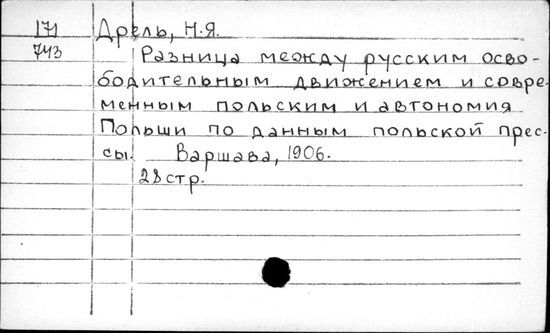 171 Дрель, Н.Я.
743 Разница между русским осво-
бодительным движением и совре-
менным польским и автономия
Польши по данным польской прес-
сы. Варшава, 1906.
28 стр.